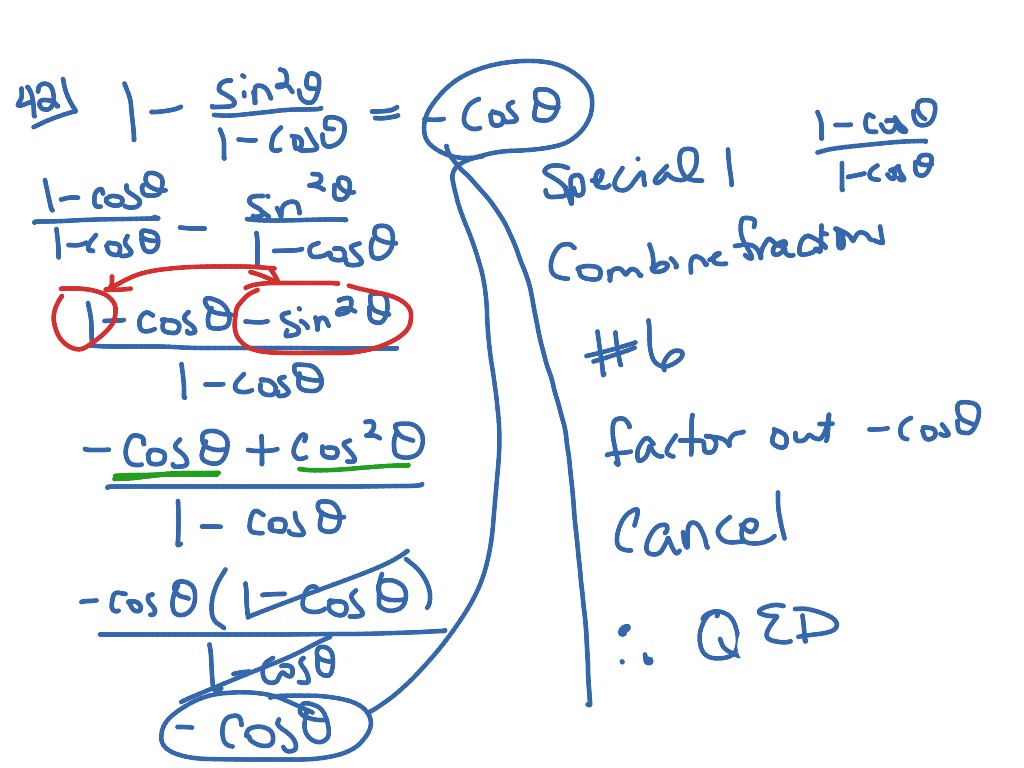 42) 1 - sin²θ / 1 - cosθ = - cosθ
1 - cosθ / 1 - cosθ - sin²θ / 1 - cosθ
1 - cosθ - sin²θ / 1 - cosθ
- cosθ + cos²θ / 1 - cosθ
- cosθ (1 - cosθ) / 1 - cosθ
- cosθ
Special 1 1 - cosθ / 1 - cosθ
Combine fractions
#6
factor out - cosθ
Cancel
∴ QED